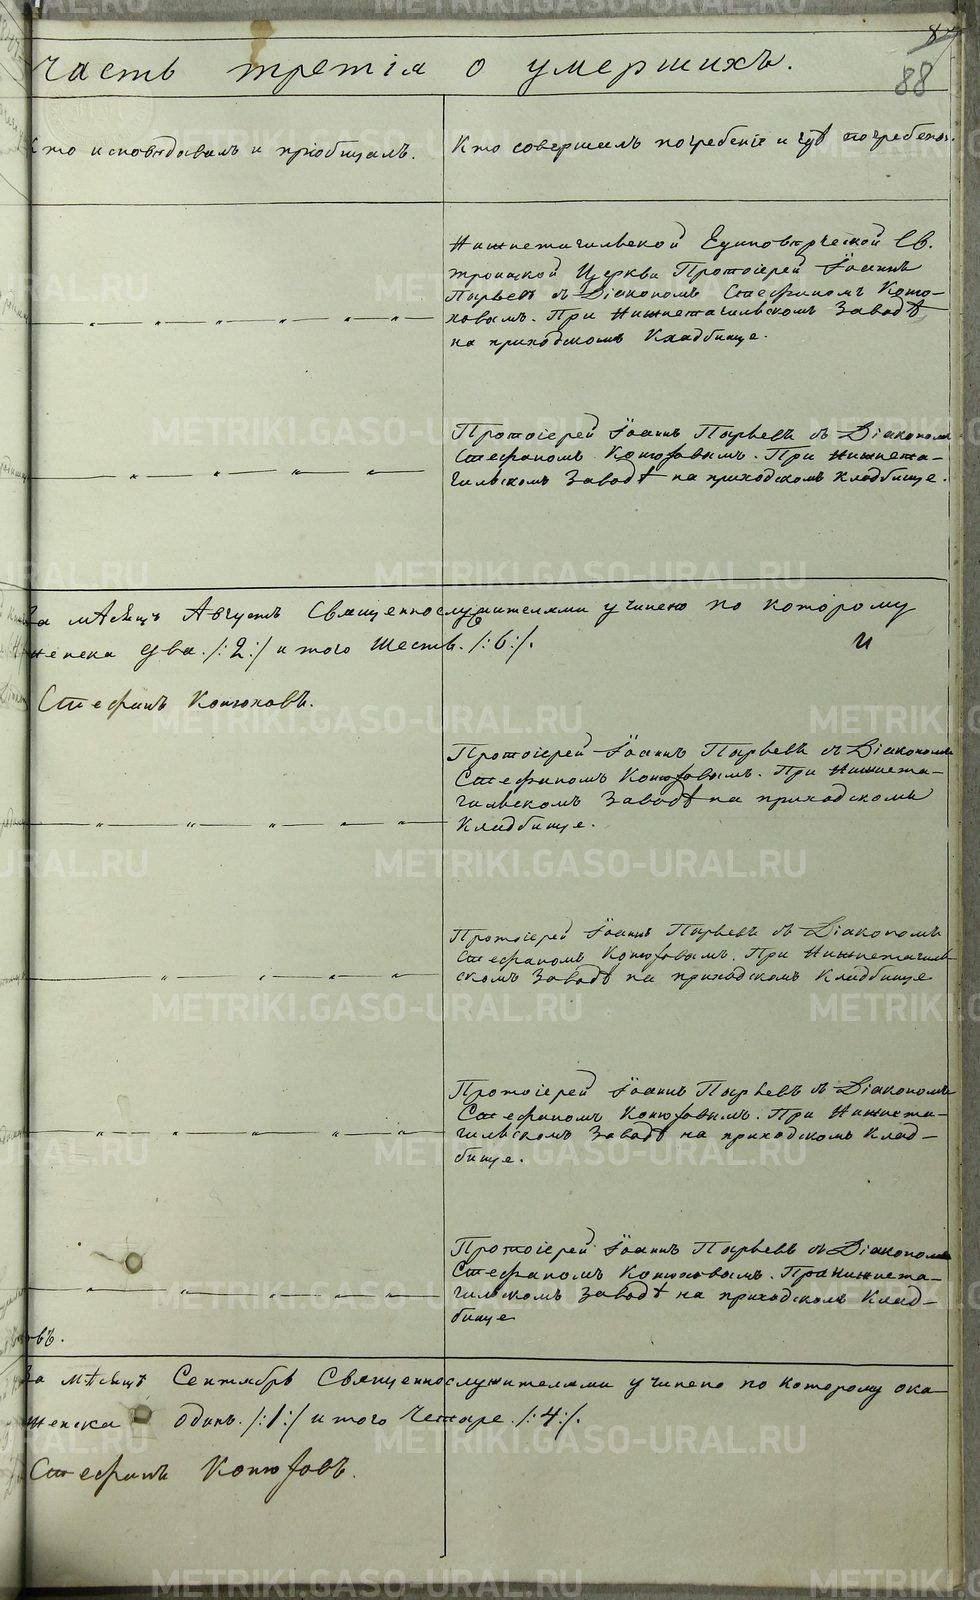 часть третія о умершихъ.
88
Кто исповѣдавалъ и пріобщалъ.
Кто совершалъ погребеніе и гдѣ погребены.
Нижнетагильской Единоверческой Св.
Троицкой Церкви Протоіерей Іоаннъ
Пырьевъ съ Діакономъ Стефаномъ Коню-
ховымъ. При Нижнетагильскомъ Заводѣ
на приходскомъ Кладбище.
Протоіерей Іоаннъ Пырьевъ съ Діакономъ
Стефаномъ Конюховымъ. При Нижнета-
гильскомъ Заводѣ на приходскомъ Кладбище.
За мѣсяцъ Августъ Священнослужителями учинено по которому
и
женска два /:2:/ итого шесть. /:6:/.
Стефанъ Конюховъ.
Протоіерей Іоаннъ Пырьевъ съ Діакономъ
Стефаномъ Конюховымъ. При Нижнета-
гильскомъ Заводѣ на приходскомъ
Кладбище.
Протоіерей Іоаннъ Пырьевъ съ Діакономъ
Стефаномъ Конюховымъ. При Нижнетагиль-
скомъ Заводѣ на приходскомъ Кладбище
Протоіерей Іоаннъ Пырьевъ съ Діакономъ
Стефаномъ Конюховымъ. При Нижнета-
гильскомъ Заводѣ на приходскомъ Клад-
бище.
Протоіерей Іоаннъ Пырьевъ съ Діакономъ
Стефаномъ Конюховымъ. При Нижнета-
гильскомъ Заводѣ на приходскомъ Клад-
бище
овъ.
За мѣсяцъ Сентябрь Священнослужителями учинено по которому ока
женска одинъ. /:1:/ итого Четыре. /:4:/.
Стефанъ Конюховъ.
METRIKI.GASO-URAL.RU